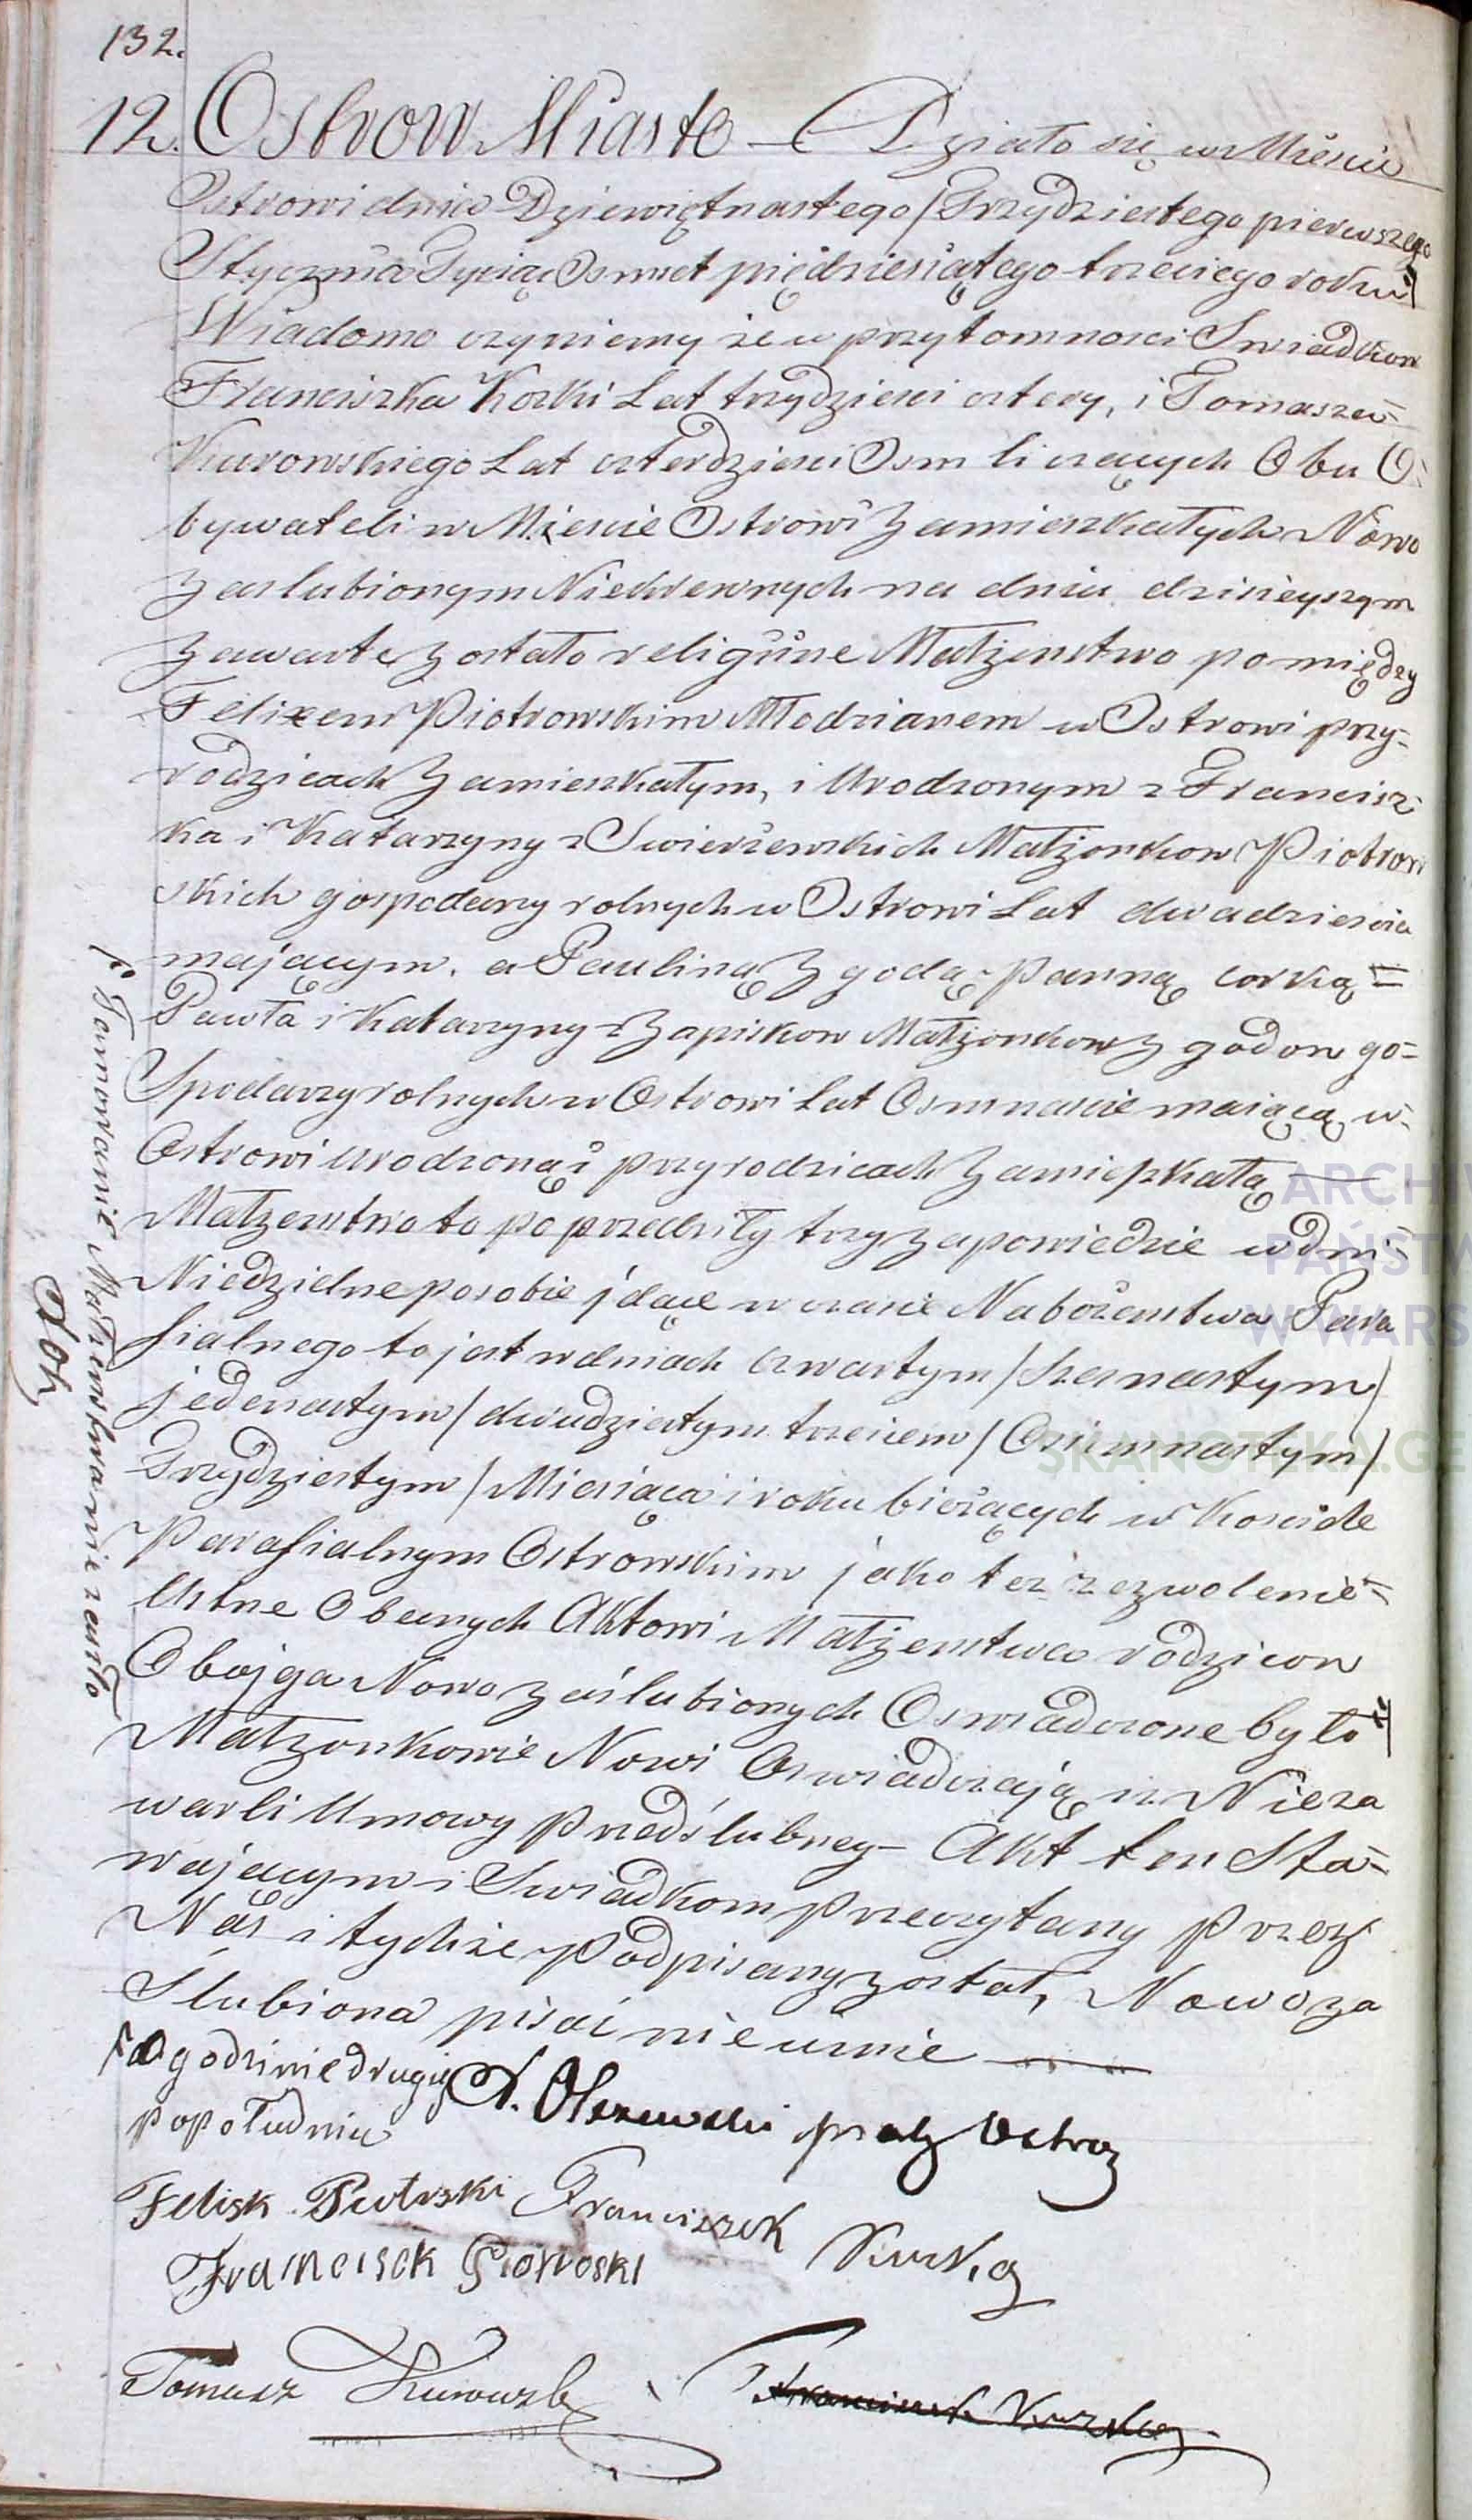 132.
12. Ostrow Miasto — Działo się w Miescie
Ostrowi dnia Dziewiętnastego / Trzydziestego pierwszego
Stycznia Tysiąc Osmset piędziesiątego trzeciego roku
Wiadomo czyniemy że w przytomnosci Swiadkow
Franciszka Kozki Lat trzydzieści cztery, i Tomasza
Kurowskiego Lat czterdziesci Osm liczących Obu O=
bywateli w Miescie Ostrowi Zamieszkałych Nowo
Zaslubionym Niekrewnych na dniu dzisieyszym
Zawarte zostało religiine Małżenstwo pomiędzy
Felixem Piotrowskim Młodzianem w Ostrowi przy-
rodzicach Zamieszkałym, i Urodzonym z Francisz-
ka i Katarzyny z Swierżewskich Małżonkow Piotrow
skich gospodarzy rolnych w Ostrowi Lat dwadziescia
mającym. a Pauliną Zgodą Panną corką =
Pawła i Katarzyny z Zapiskow Małżonkow Zgodow go=
Spodarzy rolnych w Ostrowi Lat Osmnascie maiącą w
Ostrowi urodzoną i przy rodzicach Zamieszkałą —
Małżenstwo to poprzedziły trzy zapowiedzie w dni
Niedzielne po sobie jdące w czasie Nabożenstwa Para
fialnego to jest w dniach czwartym / Szesnastym /
jedenastym / dwudziestym trzeciem / Osiemnastym /
Trzydziestym / Miesiąca i roku bieżących w Kosciele
Parafialnym Ostrowskim jako też zezwolenie =
Ustne Obecnych Aktowi Małżenstwa rodzicow
Obojga Nowo zaślubionych Oswiadczone było
Małzonkowie Nowi Oswiadczają iż Nieza
warli Umowy Przedślubney — Akt ten Sta=
wającym i Swiadkom Przeczytany Przez
Nas i tychże Podpisany został, Nowoza
Slubiona pisać nieumie —
o godzinie drugiy
popołudniu
Olszewski
Felisk
Franciszek Kurka
Franciscek Piotroski
Tomasz Kurowski
Franciszek
Tamowanie Małżenstwa nie zaszło
ARCHIW
PAŃSTW
W WARS
SKANOTEKA.GE